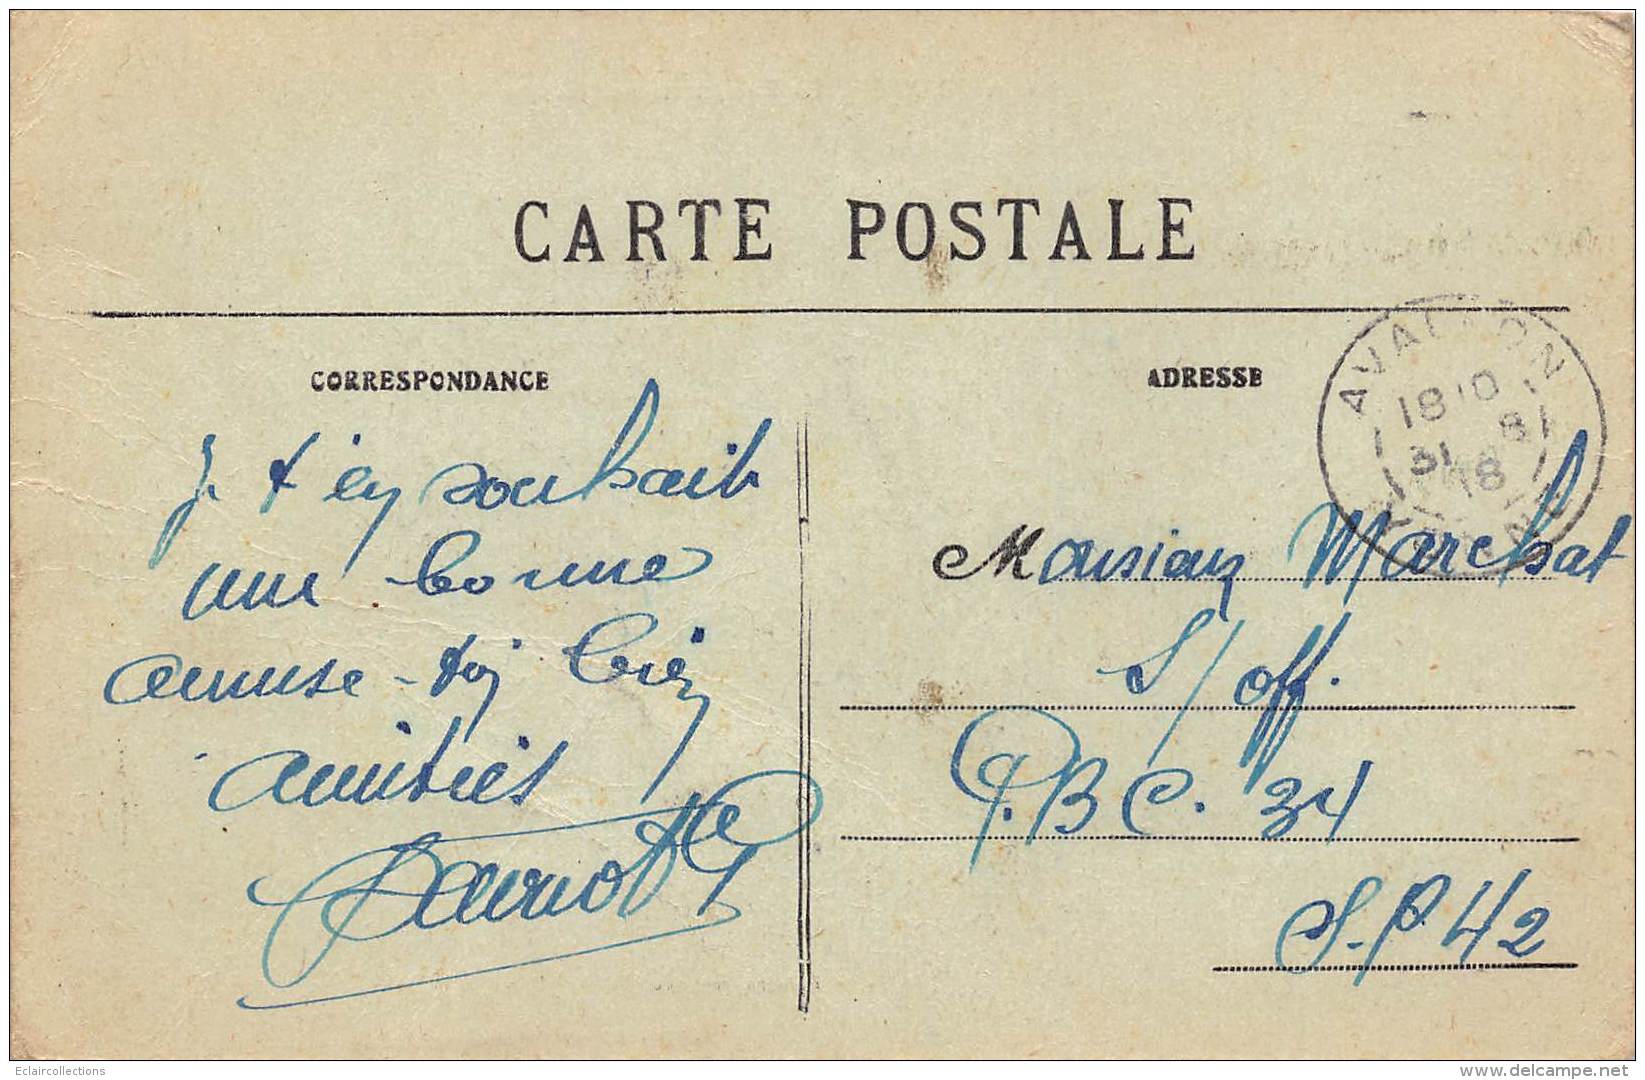 CARTE POSTALE
CORRESPONDANCE
ADRESSE
AVALLON
18 10
31 8
18
YONNE
Je t'en souhait
une bonne
amuse-toi bien
amitiés
Monsieur Marchat
S/off.
P.B C. 34
S.P. 42
Eclaircollections
delcampe.net